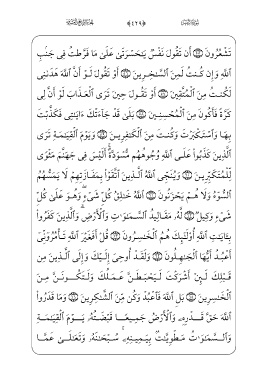 ﴿٤٢٩﴾
تَشْعُرُونَ ۝ أَن تَقُولَ نَفْسٌ يَـٰحَسْرَتَىٰ عَلَىٰ مَا فَرَّطتُ فِى جَنۢبِ
ٱللَّهِ وَإِن كُنتُ لَمِنَ ٱلسَّـٰخِرِينَ ۝ أَوْ تَقُولَ لَوْ أَنَّ ٱللَّهَ هَدَىٰنِى
لَكُنتُ مِنَ ٱلْمُتَّقِينَ ۝ أَوْ تَقُولَ حِينَ تَرَى ٱلْعَذَابَ لَوْ أَنَّ لِى
كَرَّةً فَأَكُونَ مِنَ ٱلْمُحْسِنِينَ ۝ بَلَىٰ قَدْ جَآءَتْكَ ءَايَـٰتِى فَكَذَّبْتَ
بِهَا وَٱسْتَكْبَرْتَ وَكُنتَ مِنَ ٱلْكَـٰفِرِينَ ۝ وَيَوْمَ ٱلْقِيَـٰمَةِ تَرَى
ٱلَّذِينَ كَذَبُوا۟ عَلَى ٱللَّهِ وُجُوهُهُم مُّسْوَدَّةٌ ۚ أَلَيْسَ فِى جَهَنَّمَ مَثْوًى
لِّلْمُتَكَبِّرِينَ ۝ وَيُنَجِّى ٱللَّهُ ٱلَّذِينَ ٱتَّقَوْا۟ بِمَفَازَتِهِمْ لَا يَمَسُّهُمُ
ٱلسُّوٓءُ وَلَا هُمْ يَحْزَنُونَ ۝ ٱللَّهُ خَـٰلِقُ كُلِّ شَىْءٍ ۖ وَهُوَ عَلَىٰ كُلِّ
شَىْءٍ وَكِيلٌ ۝ لَّهُۥ مَقَالِيدُ ٱلسَّمَـٰوَٰتِ وَٱلْأَرْضِ ۗ وَٱلَّذِينَ كَفَرُوا۟
بِـَٔايَـٰتِ ٱللَّهِ أُو۟لَـٰٓئِكَ هُمُ ٱلْخَـٰسِرُونَ ۝ قُلْ أَفَغَيْرَ ٱللَّهِ تَأْمُرُوٓنِّىٓ
أَعْبُدُ أَيُّهَا ٱلْجَـٰهِلُونَ ۝ وَلَقَدْ أُوحِىَ إِلَيْكَ وَإِلَى ٱلَّذِينَ مِن
قَبْلِكَ لَئِنْ أَشْرَكْتَ لَيَحْبَطَنَّ عَمَلُكَ وَلَتَكُونَنَّ مِنَ
ٱلْخَـٰسِرِينَ ۝ بَلِ ٱللَّهَ فَٱعْبُدْ وَكُن مِّنَ ٱلشَّـٰكِرِينَ ۝ وَمَا قَدَرُوا۟
ٱللَّهَ حَقَّ قَدْرِهِۦ وَٱلْأَرْضُ جَمِيعًا قَبْضَتُهُۥ يَوْمَ ٱلْقِيَـٰمَةِ
وَٱلسَّمَـٰوَٰتُ مَطْوِيَّـٰتٌۢ بِيَمِينِهِۦ ۚ سُبْحَـٰنَهُۥ وَتَعَـٰلَىٰ عَمَّا